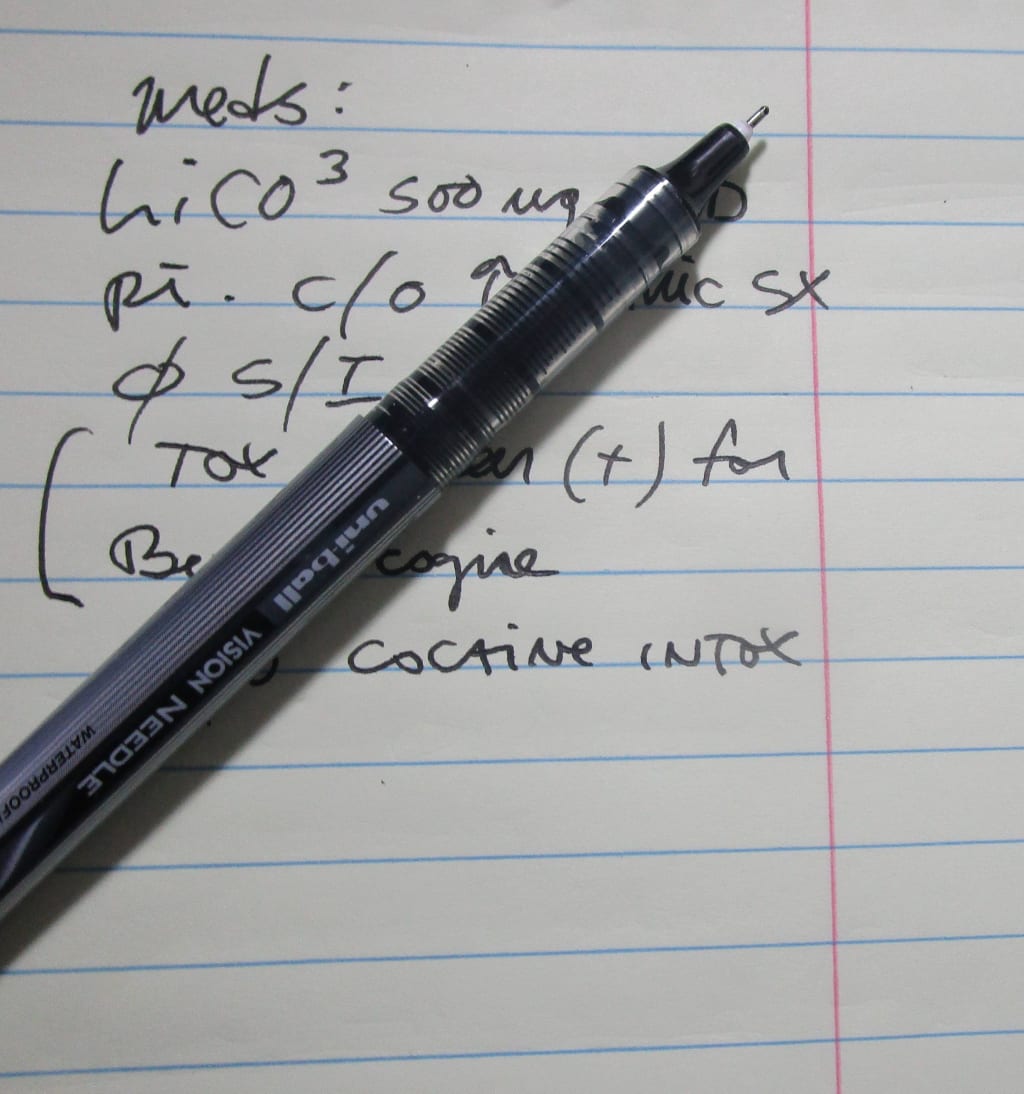 meds:
LiCO³ 500 mg D
pt. c/o ↑ nic SX
ϕ S/I
Tox en (+) for
Be cogine
COCAINE INTOX
uni-ball
VISION NEEDLE
WATERPROOF